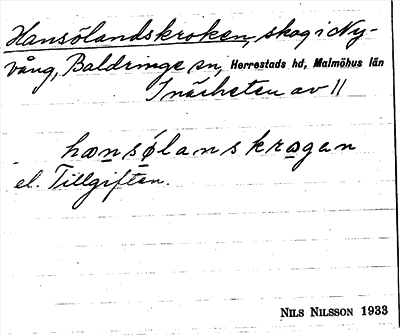 Hansölandskroken, skog i Ny-
vång, Baldringe sn, Herrestads hd, Malmöhus län
I närheten av 11
hansölanskrogan
el. Tillgiften.
NILS NILSSON 1933